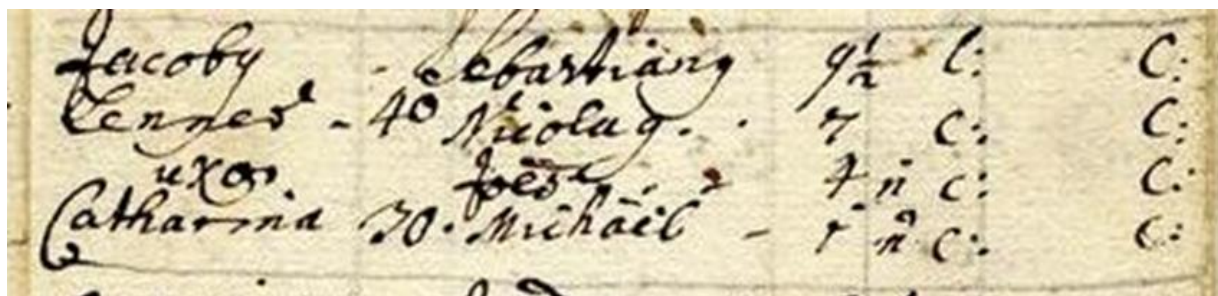 Jacoby - Sebastiang 9½ C: C:
Lenner - 40 Nicolag. . 7 C: C:
uxor. Joes . - 4 n C: C:
Catharina 30. Michäel - n C: C: